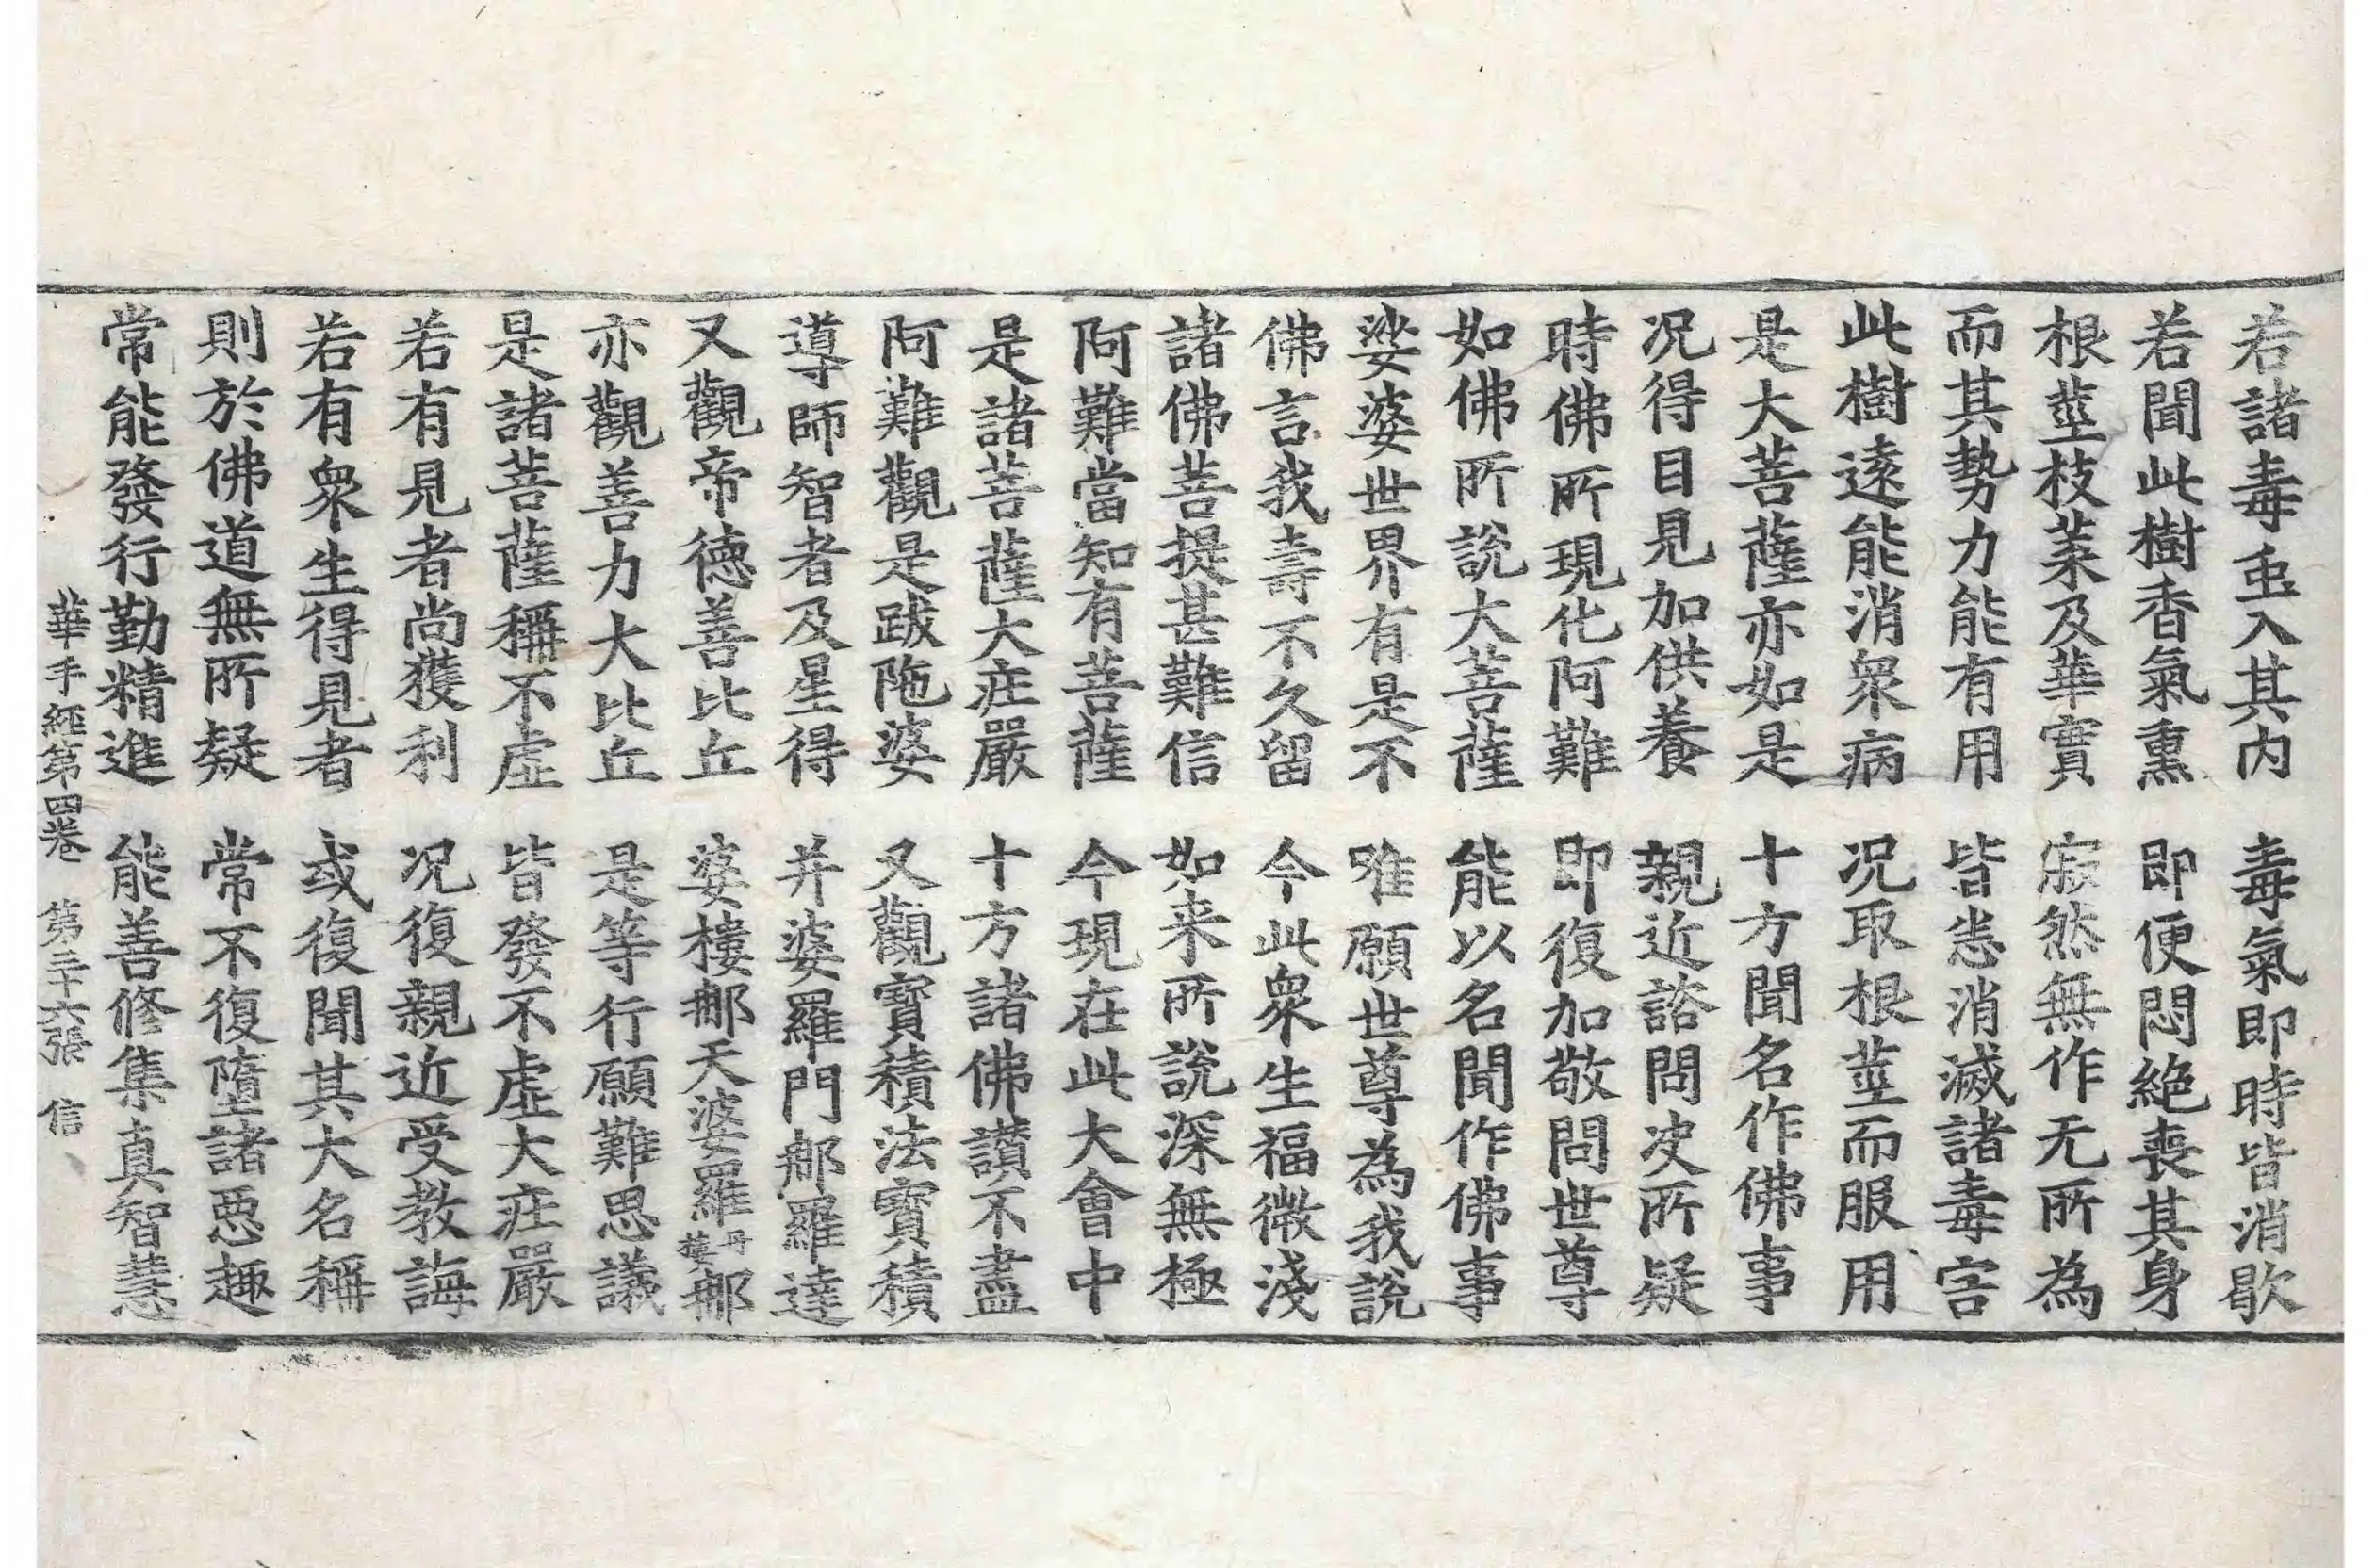 若諸毒䖝入其内　毒氣即時皆消歇
若聞此樹香氣熏　即便悶絕喪其身
根莖枝葉及華實　寂然無作无所為
而其勢力能有用　皆悉消滅諸毒害
此樹遠能消衆病　况取根莖而服用
是大菩薩亦如是　十方聞名作佛事
况得目見加供養　親近諮問决所疑
時佛所現化阿難　即復加敬問世尊
如佛所說大菩薩　能以名聞作佛事
娑婆世界有是不　唯願世尊為我說
佛言我壽不久留　今此衆生福微淺
諸佛菩提甚難信　如来所說深無極
阿難當知有菩薩　今現在此大會中
是諸菩薩大莊嚴　十方諸佛讃不盡
阿難觀是跋陁婆　又觀寶積法寶積
導師智者及星得　并婆羅門那羅達
又觀帝德善比丘　婆樓那天婆羅丹蔞那
亦觀善力大比丘　是等行願難思議
是諸菩薩稱不虛　皆發不虛大莊嚴
若有見者尚獲利　况復親近受教誨
若有衆生得見者　或復聞其大名稱
則於佛道無所疑　常不復墮諸惡趣
常能發行勤精進　能善修集真智慧
華手經第四卷　第二十六張　信